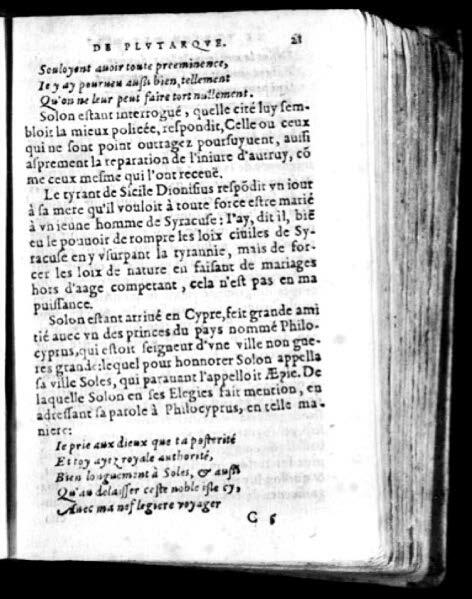 DE PLVTARQVE. 21
Souloyent auoir toute preeminence,
Ie y ay pourueu außi bien, tellement
Qu'on ne leur peut faire tort nullement.
Solon estant interrogué, quelle cité luy sem-
bloit la mieux policée, respondit, Celle ou ceux
qui ne sont point outragez poursuyuent, aussi
asprement la reparation de l'iniure d'autruy, cõ
me ceux mesme qui l'ont receuë.
Le tyrant de Sicile Dionisius respõdit vn iour
à sa mere qu'il vouloit à toute force estre marié
à vn ieune homme de Syracuse: I'ay, dit il, biẽ
eu le pouuoir de rompre les loix ciuiles de Sy-
racuse en y vsurpant la tyrannie, mais de for-
cer les loix de nature en faisant de mariages
hors d'aage competant, cela n'est pas en ma
puissance.
Solon estant arriué en Cypre, feit grande ami
tié auec vn des princes du pays nommé Philo-
cyprus, qui estoit seigneur d'vne ville non gue-
res grande: lequel pour honnorer Solon appella
sa ville Soles, qui parauant l'appelloit Æpie. De
laquelle Solon en ses Elegies fait mention, en
adressant sa parole à Philocyprus, en telle ma-
niere:
Ie prie aux dieux que ta posterité
Et toy ayez royale authorité,
Bien longuement à Soles, & außi
Qu'au delaisser ceste noble isle cy,
Auec ma nef legiere voyager
C 5